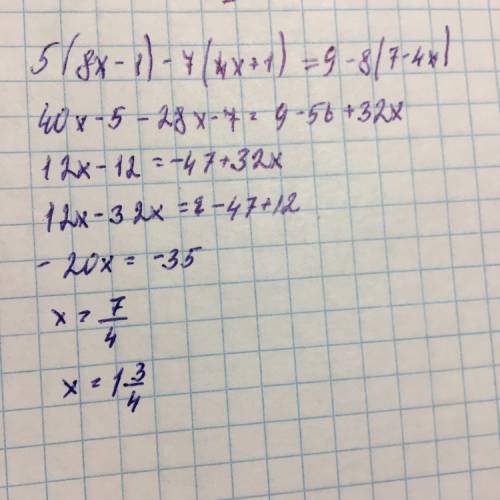 5(8x-1)-7(4x+1)=9-8(7-4x)
40x-5-28x-7=9-56+32x
12x-12=-47+32x
12x-32x=-47+12
-20x=-35
x=7/4
x=1 3/4